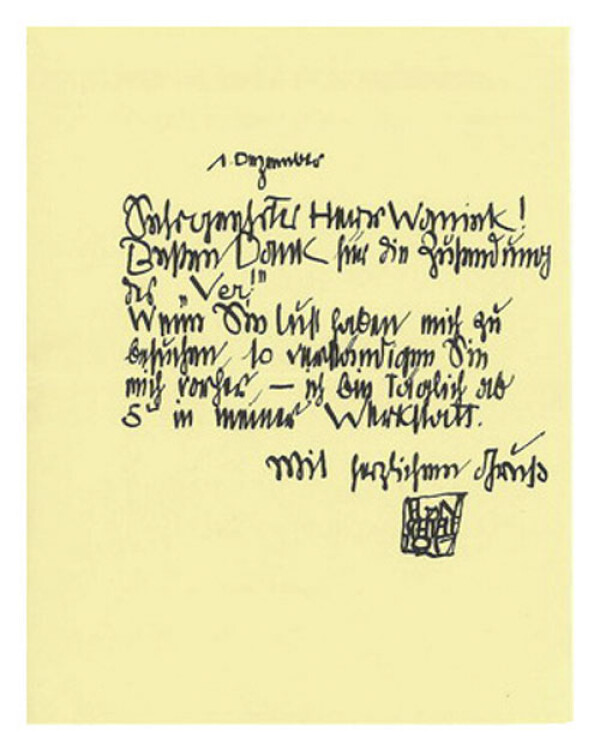 1. Dezember
Sehr geehrter Herr Waniek!
Besten Dank für die Zusendung
des „Ver!“
Wenn Sie lust haben mich zu
besuchen, so verständigen Sie
mich vorher, – ich bin täglich ab
5h in meiner Werkstatt.
Mit herzlichem Gruß